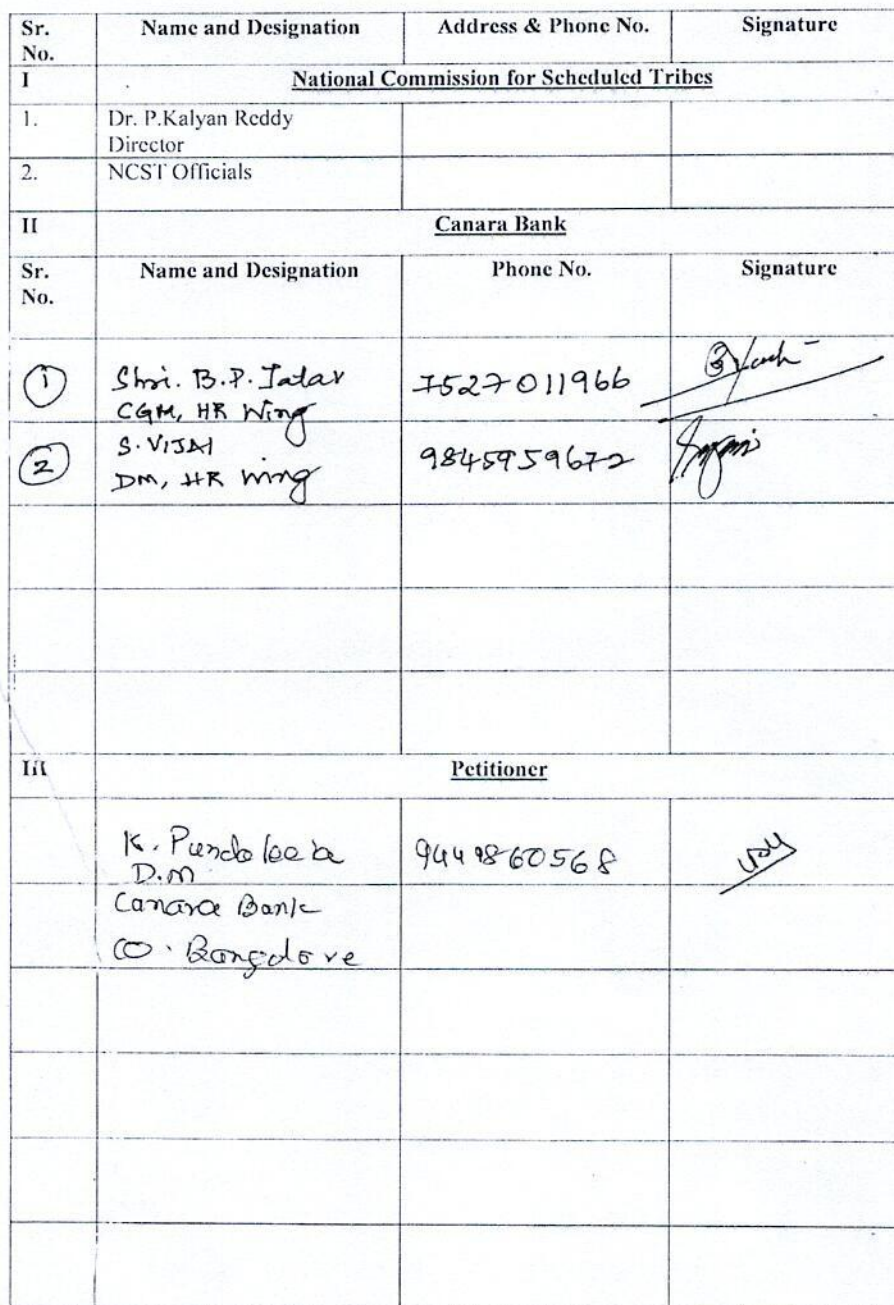 Sr. No. Name and Designation Address & Phone No. Signature
I National Commission for Scheduled Tribes
1. Dr. P.Kalyan Reddy
Director
2. NCST Officials
II Canara Bank
Sr. No. Name and Designation Phone No. Signature
1 Shri. B.P. Jatav 7527011966
CGM, HR Wing
2 S. VIJAI 9845959672
DM, HR Wing
III Petitioner
K. 9449860568
D.M
Canara Bank
CO. Bangalore